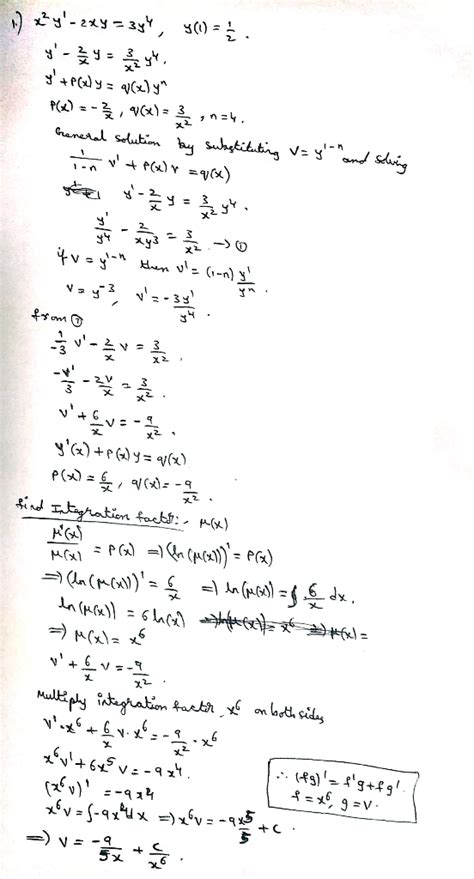 1.) x² y' - 2xy = 3y⁴, y(1) = 1/2.
y' - 2/x y = 3/x² y⁴.
y' + P(x) y = q(x) yⁿ
P(x) = -2/x, q(x) = 3/x², n = 4.
General solution by substituting v = y¹⁻ⁿ and solving
1/(1-n) v' + P(x) v = q(x)
y' - 2/x y = 3/x² y⁴.
y'/y⁴ - 2/(xy3) = 3/x². → ①
if v = y¹⁻ⁿ then v' = (1-n) y'/yⁿ.
v = y⁻³, v' = -3y'/y⁴.
from ①
1/-3 v' - 2/x v = 3/x².
-v'/3 - 2v/x = 3/x².
v' + 6/x v = -9/x².
y'(x) + P(x) y = q(x)
P(x) = 6/x, q(x) = -9/x².
find Integration factor:- μ(x)
μ'(x)/μ(x) = P(x) ⇒ (ln(μ(x)))' = P(x)
⇒ (ln(μ(x)))' = 6/x ⇒ ln(μ(x)) = ∫ 6/x dx.
ln(μ(x)) = 6 ln(x)
⇒ μ(x) = x⁶
v' + 6/x v = -9/x².
Multiply integration factor x⁶ on both sides
v'·x⁶ + 6/x v·x⁶ = -9/x² · x⁶
x⁶v' + 6x⁵ v = -9x⁴.
(x⁶v)' = -9x⁴
∴ (fg)' = f'g + fg'.
f = x⁶, g = v.
x⁶v = ∫-9x⁴dx ⇒ x⁶v = -9x⁵/5 + c.
⇒ v = -9/5x + c/x⁶.